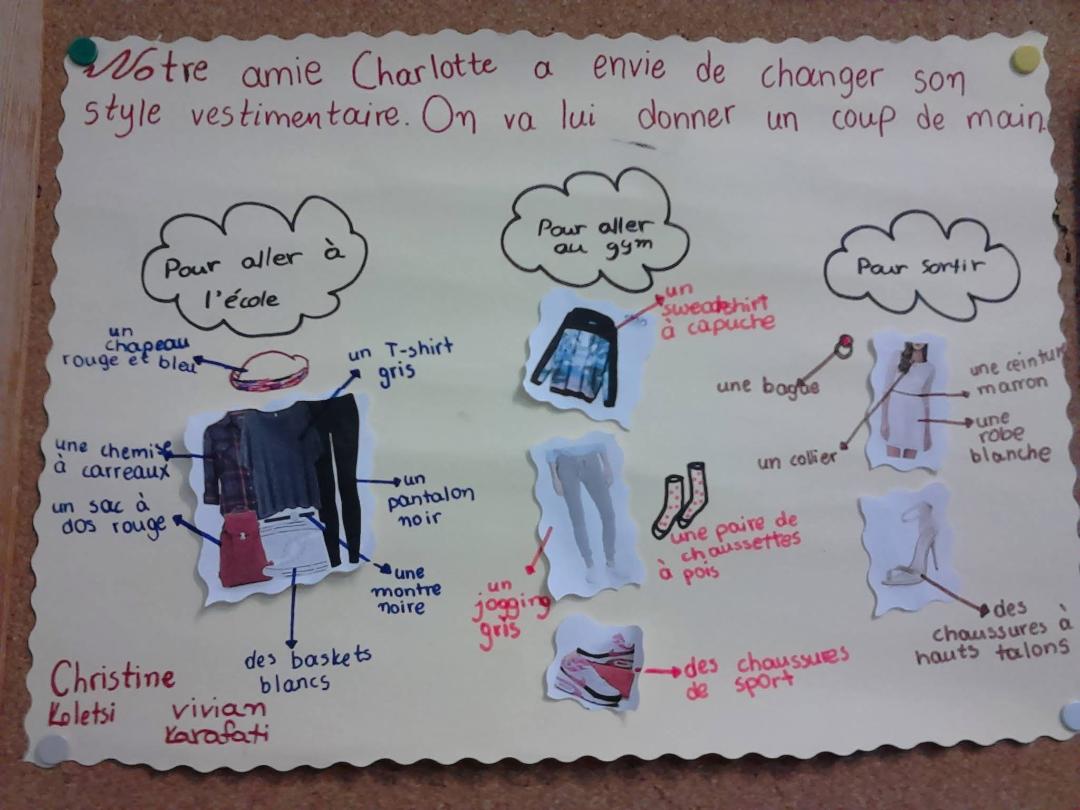 Notre amie Charlotte a envie de changer son
style vestimentaire. On va lui donner un coup de main.
Pour aller à
l'école
un
chapeau
rouge et bleu
un T-shirt
gris
une chemise
à carreaux
un sac à
dos rouge
un
pantalon
noir
une
montre
noire
des baskets
blancs
Pour aller
au gym
un
sweatshirt
à capuche
une paire de
chaussettes
à pois
un
jogging
gris
des chaussures
de sport
Pour sortir
une bague
une ceintur
marron
un collier
une
robe
blanche
des
chaussures à
hauts talons
Christine
Koletsi
vivian
Karafati